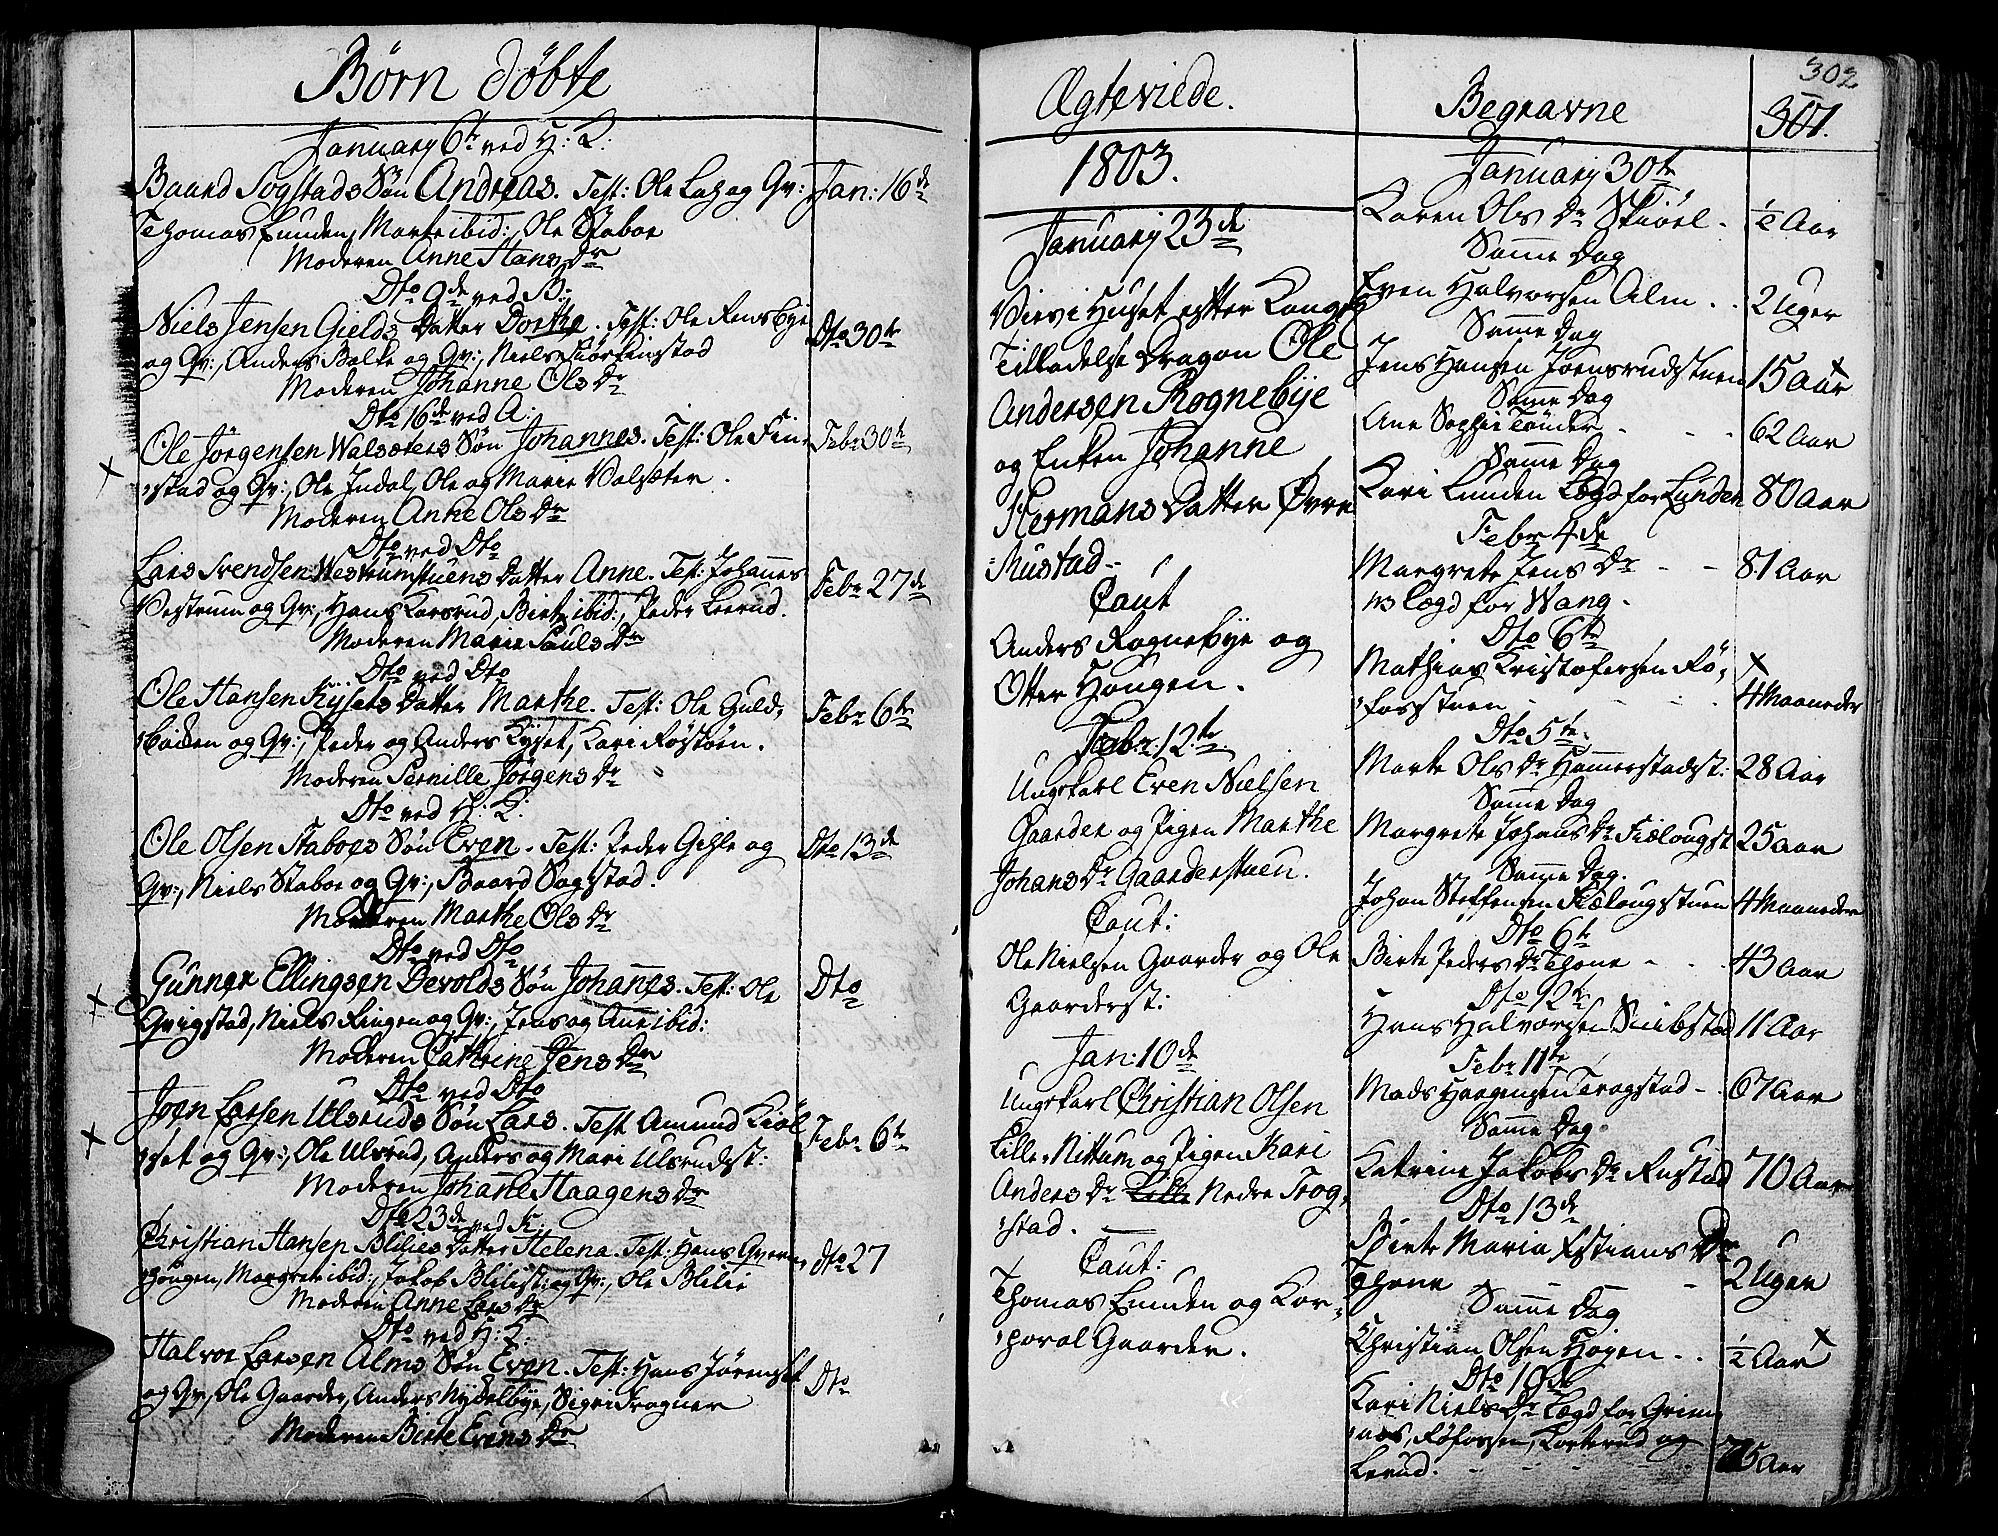 Børn døbte
January 6te ved H: K:
Baard Sogstads Søn Andreas. Test: Ole Lah og Qv: Jan: 16de
Thomas Lunden, Marte ibid:, Ole Staboe
Moderen Anne Hans Dr
Dto 9de ved B:
Niels Jensen Gields Datter Dorthe. Test: Ole Rensbye Dto 30te
og Qv:, Anders Balke og Qv:, Niels
Moderen Johanne Ols Dr
Dto 16de ved A:
Ole Jørgensen Walsæters Søn Johannes. Test: Ole Fin- Febr 30te
stad og Qv:, Ole Indal, Ole og Marie Valsæter.
Moderen Anne Ols Dr
Dto ved Dto
Lars Svendsen Westrumstuens Datter Anne. Test: Johannes Febr 27de
Vestrum og Qv:, Hans Karsrud, Birte ibid:, Peder Leerud.
Moderen Marie Pauls Dr
Dto ved Dto
Ole Hansen Kysets Datter Marthe. Test: Ole Guld- Febr 6te
og Qv:, Peder og Anders Kyset, Kari Røstøen.
Moderen Pernille Jørgens Dr
Dto ved H: K:
Ole Olsen Staboes Søn Even. Test: Peder Gihle og Dto 13de
Qv:, Niels Staboe og Qv:, Baard Sogstad.
Moderen Marthe Ols Dr
Dto ved Dto
Gunner Ellingsen Devolds Søn Johanes. Test: Ole Dto
Qvigstad, Niels Ringen og Qv:, Jens og Anne ibid:
Moderen Cathrine Jens Dr
Dto ved Dto
Joen Larsen Ulsruds Søn Lars. Test Amund Kiøl Febr 6te
set og Qv:, Ole Ulsrud, Anders og Mari Ulsrudst:
Moderen Johane Haagens Dr
Dto 23de ved K:
Christian Hansen Blilies Datter Helena. Test: Hans Qvern- Dto 27
hougen, Margrete ibid:, Jakob Blilist: og Qv:, Ole Blilie
Moderen Anne Lars Dr
Dto ved H: K:
Halvor Larsen Alms Søn Even. Test: Hans Jørenst Dto
og Qv, Ole Gaarder, Anders Nydelbye, Sigri Fragner
Moderen Birte Evens Dr
Ægteviede.
1803.
January 23de
Vievi Huset efter Kongelig
Tilladelse Dragon Ole
Andersen Rognebye
og Enken Johanne
Hermans Datter Øvre
Rustad
Caut
Anders Rognebye og
Otter Hougen.
Febr: 12te
Ungkarl Even Nielsen
Gaarder og Pigen Marthe
Johans Dr Gaarderstuen.
Caut:
Ole Nielsen Gaarder og Ole
Gaarderst:
Jan: 10de
Ungkarl Christian Olsen
Lille-Nittum og Pigen Kari
Anders Dr Lille Nedre Trog-
stad.
Caut:
Thomas Lunden og Kor-
poral Gaarder.
Begravne
302
301.
January 30te
Karen Ols Dr Skiøel. ½ Aar
Samme Dag
Even Halvorsen Alm. 2 Uger
Samme Dag
Jens Hansen Joensrudstuen 15 Aar
Samme Dag
Ane Sophie Tønder 62 Aar
Samme Dag
Kari Lunden Lægd for Lunden 80 Aar
Febr 4de
Margrete Jens Dr 81 Aar
Lægd for Wang.
Dto 6te
Mathias Kristofersen Rø-
fosstuen 4 Maaneder
Dto 5te
Marte Ols Dr Hamerstadst: 28 Aar
Samme Dag
Margrete Johans Dr Fiælougst 25 Aar
Samme Dag.
Johan Steffensen Fiælougstuen 4 Maaneder
Dto 6te
Birte Peders Dr Thone 43 Aar
Dto 12te
Hans Halvorsen Snibstad 11 Aar
Febr 11te
Mads Haagensen Trogstad 67 Aar
Samme Dag.
Katrine Jakobs Dr Rustad 70 Aar
Dto 13de
Birte Maria Estians Dr
Thone 2 Uger
Samme Dag
Christian Olsen Høgen ½ Aar
Dto 19de
Kari Niels Dr Lægd for Grim-
næs, Røfossen, Korterud og
Lerud. 75 Aar